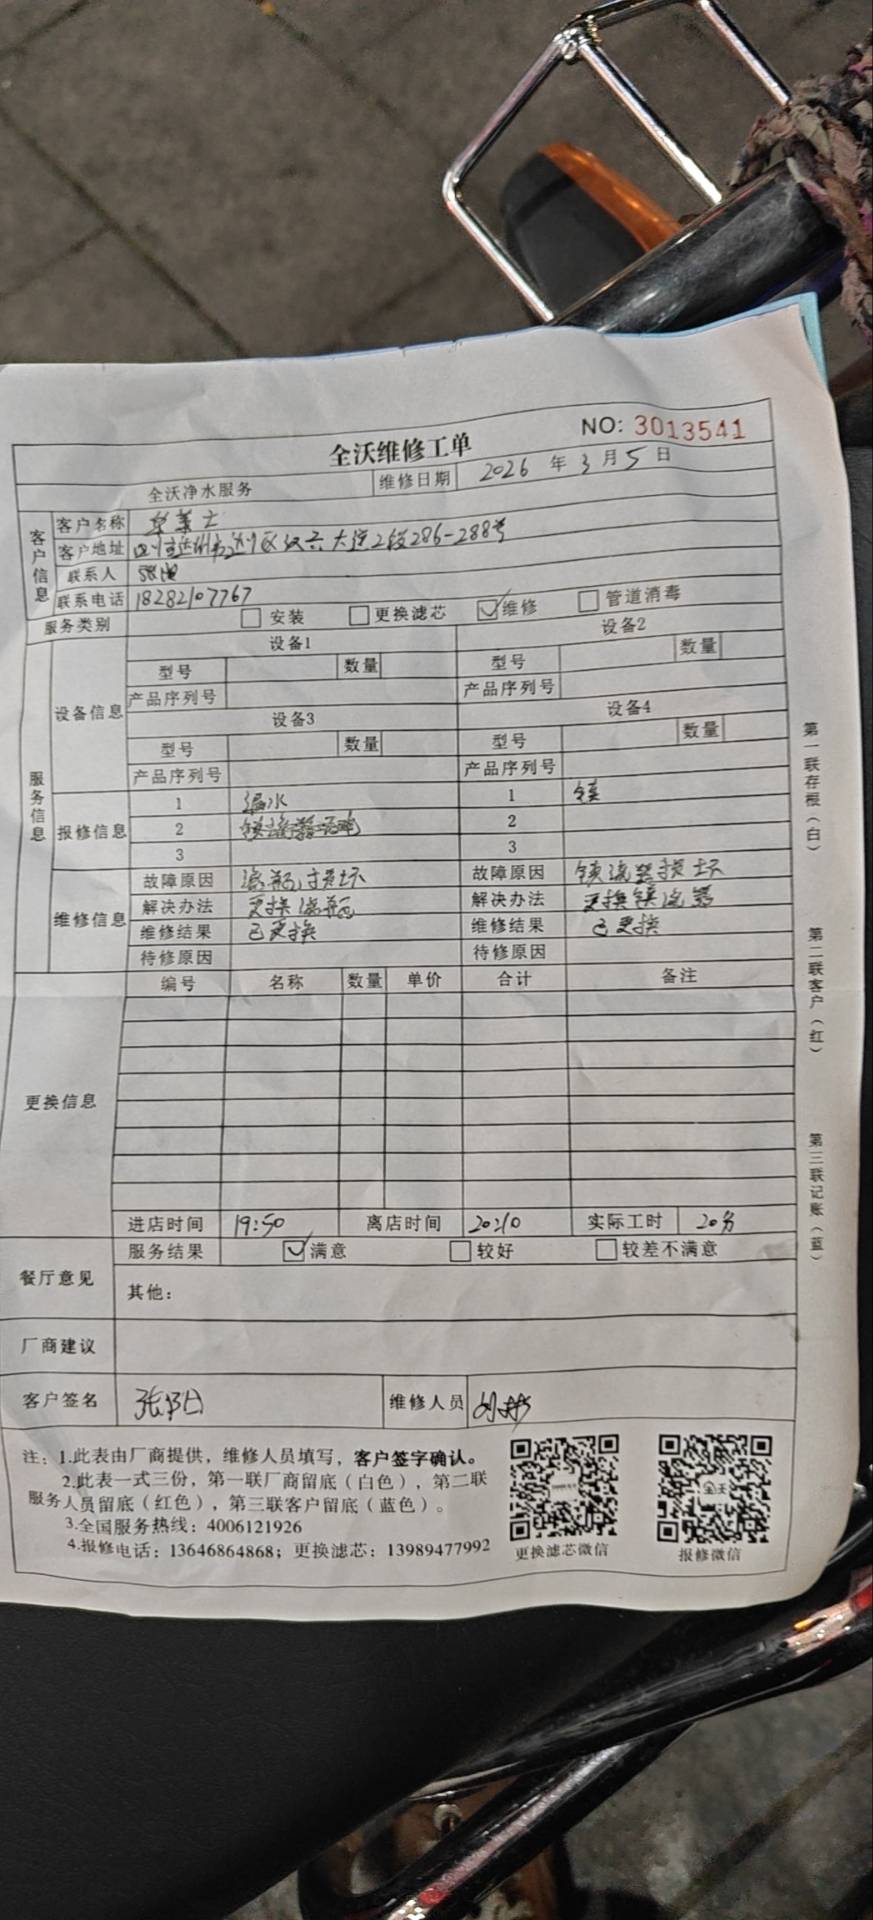 全沃维修工单
NO: 3013541
全沃净水服务 维修日期 2026 年 3 月 5 日
客户信息
客户名称
客户地址 大道2段286-288号
联系人
联系电话 18282107767
服务类别 安装 更换滤芯 维修 管道消毒
服务信息
设备信息
设备1 设备2
型号 数量 型号 数量
产品序列号 产品序列号
设备3 设备4
型号 数量 型号 数量
产品序列号 产品序列号
报修信息
1 漏水 1 镇
2 2
3 3
维修信息
故障原因 滤瓶损坏 故障原因 镇流器损坏
解决办法 更换滤瓶 解决办法 更换镇流器
维修结果 已更换 维修结果 已更换
待修原因 待修原因
更换信息
编号 名称 数量 单价 合计 备注
进店时间 19:50 离店时间 20:10 实际工时 20分
餐厅意见
服务结果 满意 较好 较差不满意
其他：
厂商建议
客户签名 维修人员
注：1.此表由厂商提供，维修人员填写，客户签字确认。
2.此表一式三份，第一联厂商留底（白色），第二联
服务人员留底（红色），第三联客户留底（蓝色）。
3.全国服务热线：4006121926
4.报修电话：13646864868；更换滤芯：13989477992
更换滤芯微信 报修微信
第一联存根（白）
第二联客户（红）
第三联记账（蓝）